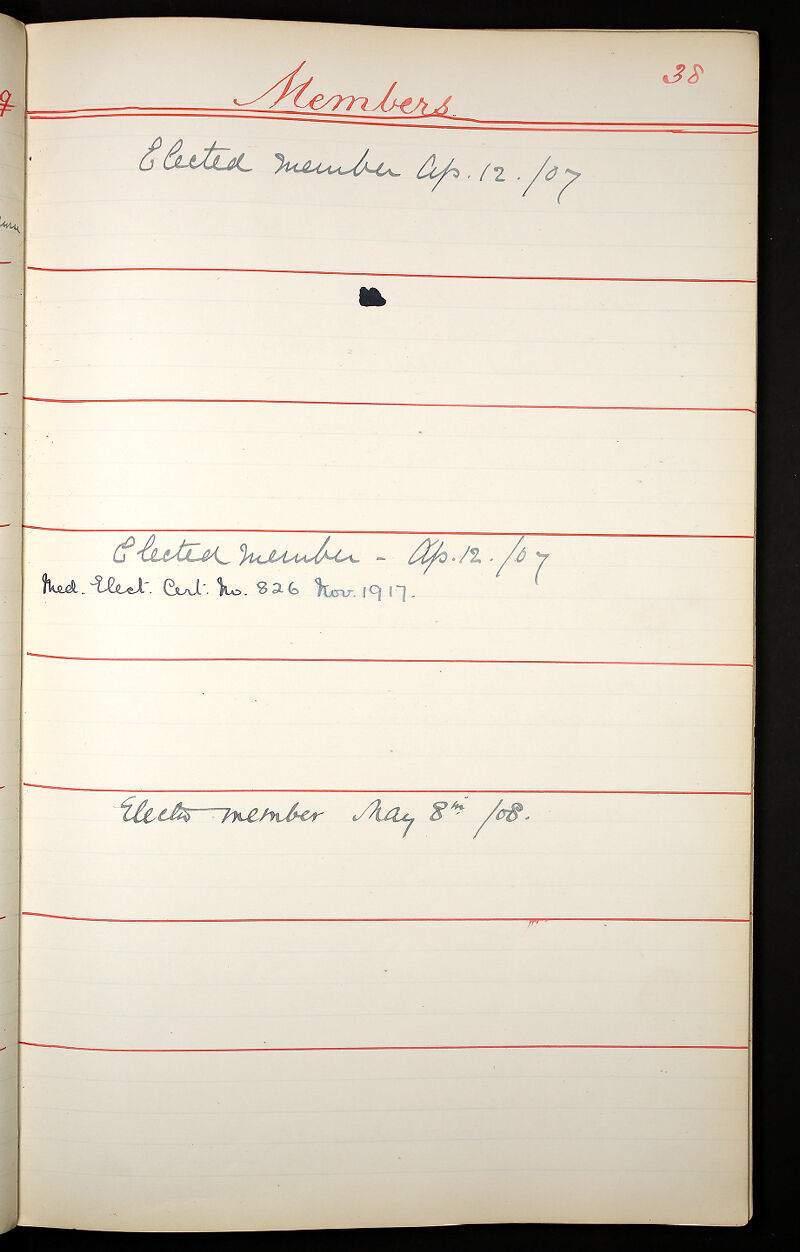 38
Members
Elected member Ap. 12. /07
Elected member - Ap. 12. /07
Med. Elect. Cert. No. 826 Nov. 1917.
member May 8th /08.